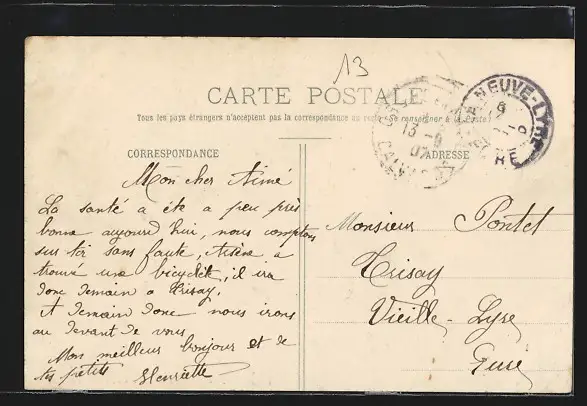 13
CARTE POSTALE
Tous les pays étrangers n'acceptent pas la correspondance au verso (Se renseigner à la Poste)
CORRESPONDANCE
ADRESSE
13 -9
07
CALVADOS
NEUVE-LYRE
EURE
Mon cher Aimé
La santé a été a peu près
bonne aujourd'hui, nous comptons
sur toi sans faute, Arsène a
trouvé une bicyclette, il ira
donc demain a Trisay.
A demain donc nous irons
au devant de vous
Mon meilleur bonjour et de
tes petits
Henriette
Monsieur Pontet
Trisay
Vieille-Lyre
Eure